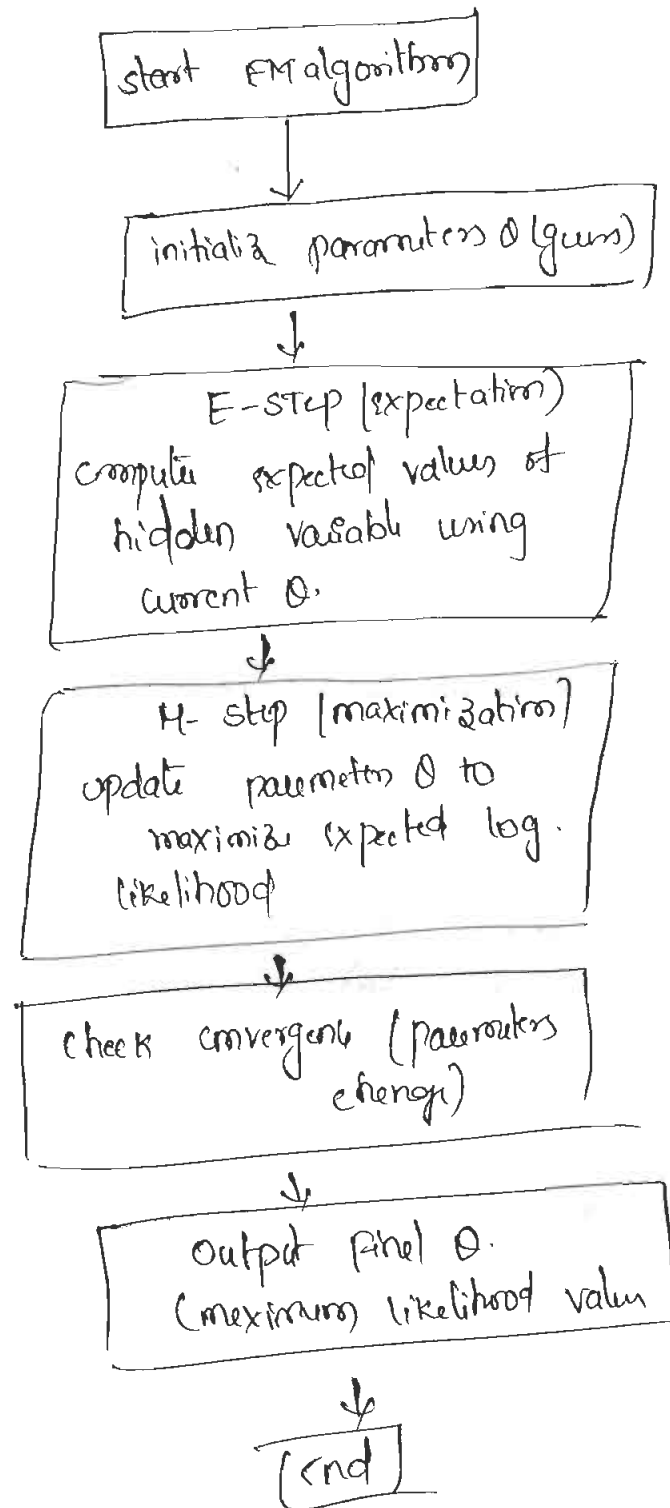 start EM algorithm
initializ parameters θ (guess)
E-STEP (expectation)
compute expected values of
hidden variable using
current θ.
M- step [maximization]
update parameters θ to
maximize expected log.
likelihood
check convergence (parameters
change)
output final θ.
(maximum likelihood values
end